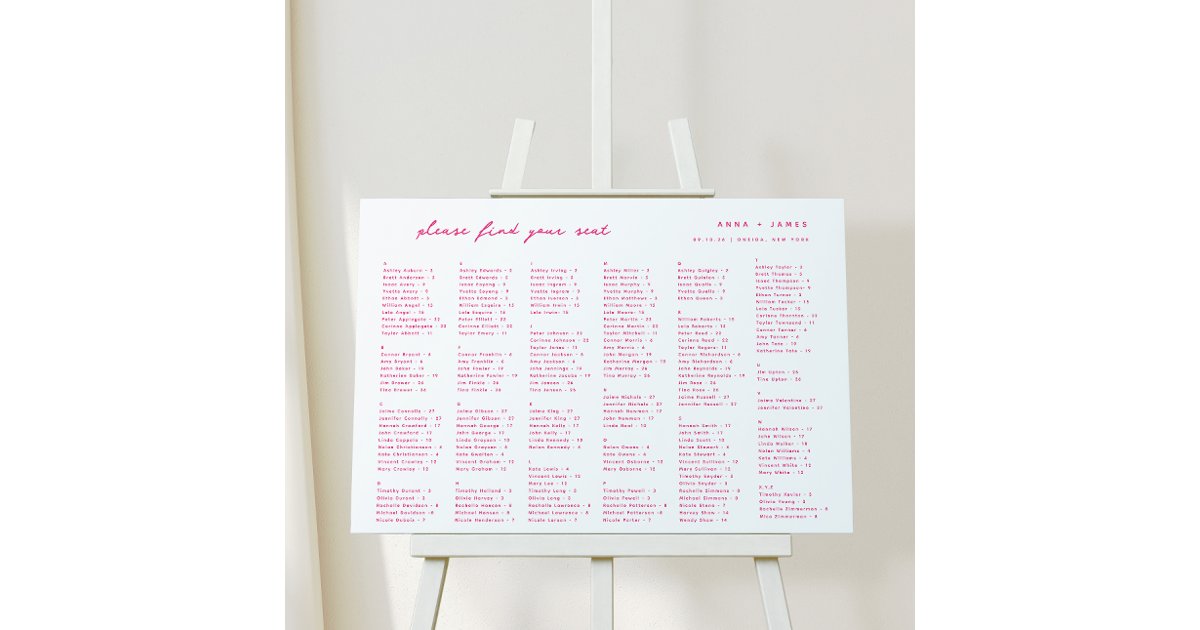 please find your seat
ANNA + JAMES
09.10.26 | ONEIDA, NEW YORK
A
Ashley Auburn - 3
Brett Anderson - 3
Isaac Avery - 9
Yvette Avery - 9
Ethan Abbott - 3
William Angel - 15
Lola Angel - 15
Peter Applegate - 22
Corinne Applegate - 22
Taylor Abbott - 11
B
Connor Bryant - 6
Amy Bryant - 6
John Baker - 19
Katherine Baker - 19
Jim Brewer - 26
Tina Brewer - 26
C
Jaime Connolly - 27
Jennifer Connolly - 27
Hannah Crawford - 17
John Crawford - 17
Linda Coppola - 10
Nolan Christensen - 4
Kate Christensen - 4
Vincent Crowley - 12
Mary Crowley - 12
D
Timothy Durant - 3
Olivia Durant - 3
Rachelle Davidson - 8
Michael Davidson - 8
Nicole Dubois - 7
E
Ashley Edwards - 3
Brett Edwards - 3
Isaac Eoyang - 9
Yvette Eoyang - 9
Ethan Edmond - 3
William Esquire - 15
Lola Esquire - 15
Peter Elliott - 22
Corinne Elliott - 22
Taylor Emery - 11
F
Connor Franklin - 6
Amy Franklin - 6
John Fowler - 19
Katherine Fowler - 19
Jim Finkle - 26
Tina Finkle - 26
G
Jaime Gibson - 27
Jennifer Gibson - 27
Hannah George - 17
John George - 17
Linda Grayson - 10
Nolan Greyson - 4
Kate Gwelton - 4
Vincent Graham - 12
Mary Graham - 12
H
Timothy Holland - 3
Olivia Harvey - 3
Rachelle Hansen - 8
Michael Hansen - 8
Nicole Henderson - 7
I
Ashley Irving - 3
Brett Irving - 3
Isaac Ingram - 9
Yvette Ingram - 9
Ethan Iverson - 3
William Irwin - 15
Lola Irwin - 15
J
Peter Johnson - 22
Corinne Johnson - 22
Taylor Jones - 11
Connor Jackson - 6
Amy Jackson - 6
John Jennings - 19
Katherine Jacobs - 19
Jim Jensen - 26
Tina Jensen - 26
K
Jaime King - 27
Jennifer King - 27
Hannah Kelly - 17
John Kelly - 17
Linda Kennedy - 10
Nolan Kennedy - 4
L
Kate Lewis - 4
Vincent Lewis - 12
Mary Lee - 12
Timothy Long - 3
Olivia Long - 3
Rachelle Lawrence - 8
Michael Lawrence - 8
Nicole Larson - 7
M
Ashley Miller - 3
Brett Marvin - 3
Isaac Murphy - 9
Yvette Murphy - 9
Ethan Matthews - 3
William Moore - 15
Lola Moore - 15
Peter Martin - 22
Corinne Martin - 22
Taylor Mitchell - 11
Connor Morris - 6
Amy Morris - 6
John Morgan - 19
Katherine Morgan - 19
Jim Murray - 26
Tina Murray - 26
N
Jaime Nichols - 27
Jennifer Nichols - 27
Hannah Newman - 17
John Newman - 17
Linda Neal - 10
O
Nolan Owens - 4
Kate Owens - 4
Vincent Osborne - 12
Mary Osborne - 12
P
Timothy Powell - 3
Olivia Powell - 3
Rachelle Patterson - 8
Michael Patterson - 8
Nicole Porter - 7
Q
Ashley Quigley - 3
Brett Quinton - 3
Isaac Qualls - 9
Yvette Qualls - 9
Ethan Queen - 3
R
William Roberts - 14
Lola Roberts - 14
Peter Reed - 22
Corinne Reed - 22
Taylor Rogers - 11
Connor Richardson - 6
Amy Richardson - 6
John Reynolds - 19
Katherine Reynolds - 19
Jim Rose - 26
Tina Rose - 26
Jaime Russell - 27
Jennifer Russell - 27
S
Hannah Smith - 17
John Smith - 17
Linda Scott - 10
Nolan Stewart - 4
Kate Stewart - 4
Vincent Sullivan - 12
Mary Sullivan - 12
Timothy Snyder - 3
Olivia Snyder - 3
Rachelle Simmons - 8
Michael Simmons - 8
Nicole Stone - 7
Harvey Shaw - 14
Wendy Shaw - 14
T
Ashley Taylor - 3
Brett Thomas - 3
Isaac Thompson - 9
Yvette Thompson - 9
Ethan Turner - 3
William Tucker - 15
Lola Tucker - 15
Corinne Thornton - 22
Taylor Townsend - 11
Connor Turner - 6
Amy Turner - 6
John Tate - 19
Katherine Tate - 19
U
Jim Upton - 26
Tina Upton - 26
V
Jaime Valentine - 27
Jennifer Valentine - 27
W
Hannah Wilson - 17
John Wilson - 17
Linda Walker - 10
Nolan Williams - 4
Kate Williams - 4
Vincent White - 12
Mary White - 12
X,Y,Z
Timothy Xavier - 3
Olivia Young - 3
Rachelle Zimmerman - 8
Mico Zimmerman - 8